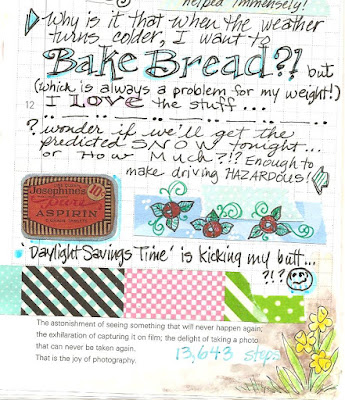 helped immensely!
Why is it that when the weather
turns colder, I want to
Bake Bread?! but
(which is always a problem for my weight!)
12 I LOVE the stuff ....
? wonder if we'll get the
predicted SNOW tonight...
or How Much?!? Enough to
make driving HAZARDOUS!
Josephine's 10
Pure
ASPIRIN
'Daylight Savings Time' is kicking my butt...
?!?
The astonishment of seeing something that will never happen again;
the exhilaration of capturing it on film; the delight of taking a photo
that can never be taken again.
That is the joy of photography.
13,643 steps